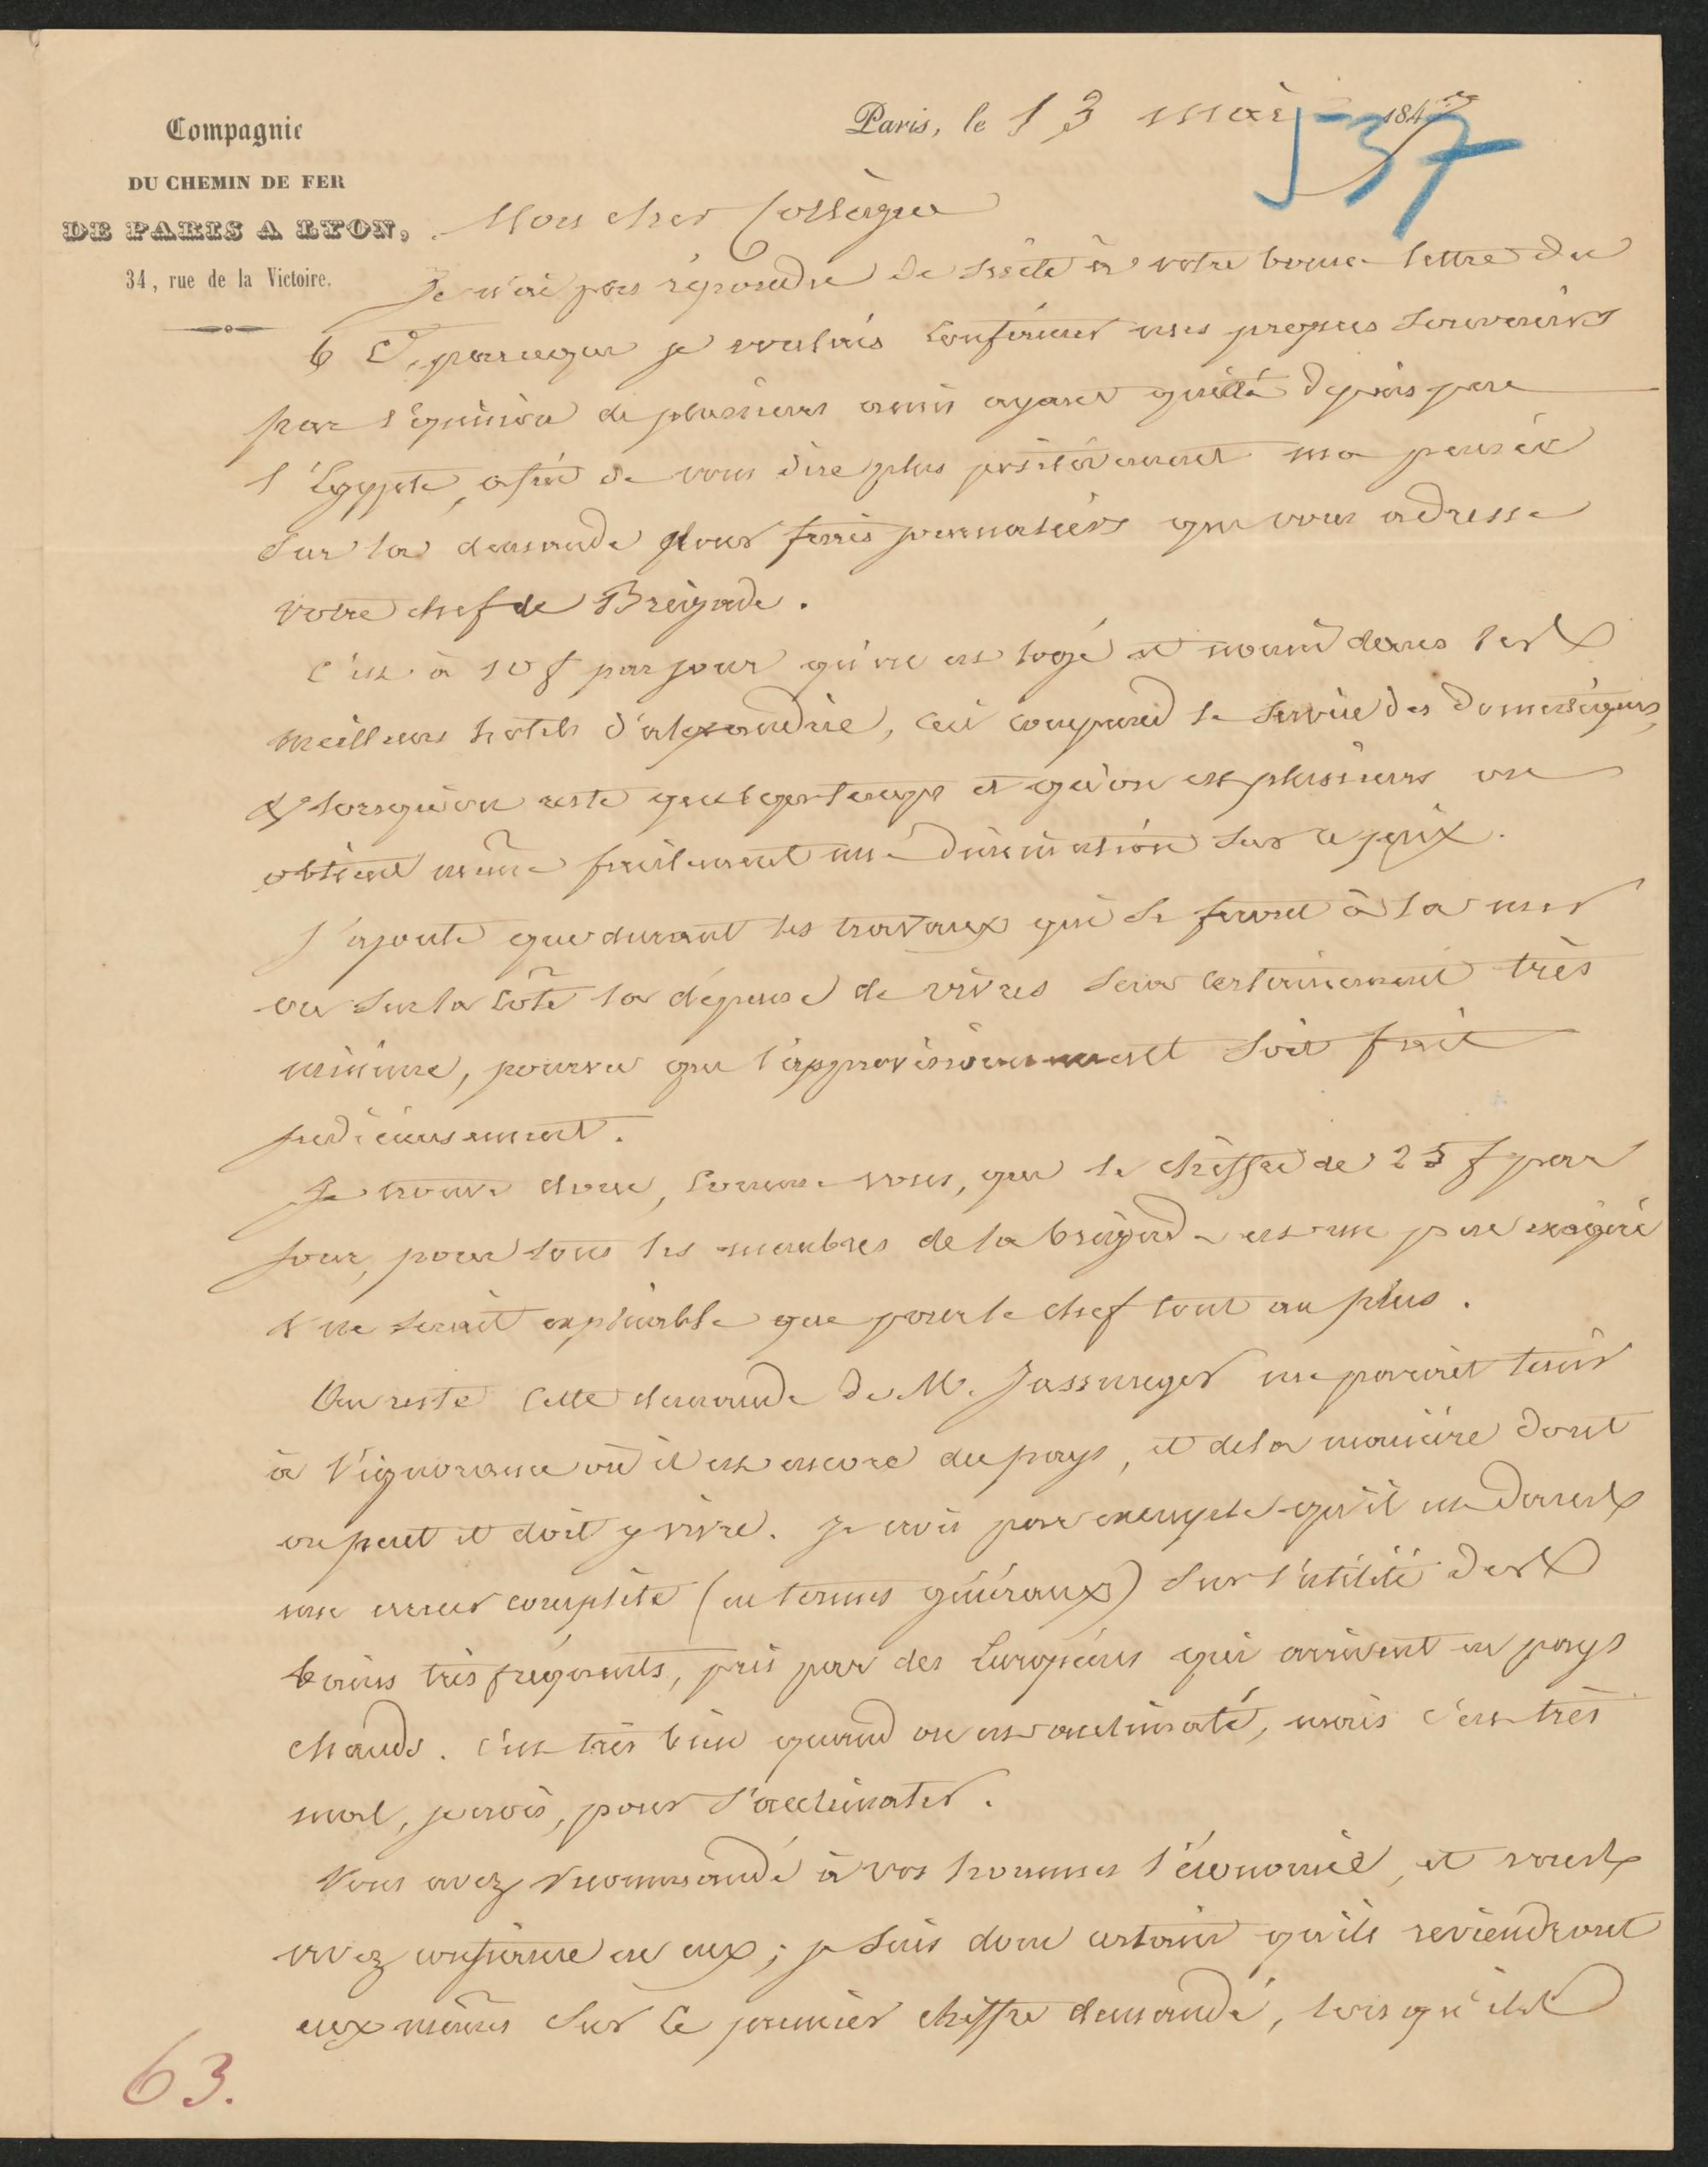 Compagnie
DU CHEMIN DE FER
DE PARIS A LYON,
34, rue de la Victoire.
Paris, le 13 mai 1847
537
Mon cher Collègue
Je n'ai pas répondu de suite à votre bonne lettre du
6 Ct, parceque je voulais confirmer mes propres souvenirs
par l'opinion de plusieurs amis ayant quitté depuis peu
l'Egypte, afin de vous dire plus positivement ma pensée
sur la demande pour frais journaliers que vous adresse
votre chef de Brigade.
C'est à 10 f par jour qu'on est logé et nourri dans les
meilleurs hotels d'alexandrie, ceci comprend le service des domestiques,
& lorsqu'on reste quelque temps et qu'on est plusieurs on
obtient même facilement une diminution sur ce prix.
J'ajoute que durant les travaux qui se feront à la mer
ou sur la côte la dépense de vivres sera certainement très
minime, pourvu que l'approvisionnement soit fait
judicieusement.
Je trouve donc, comme vous, que le chiffre de 25 f par
jour, pour tous les membres de la brigade est un peu exagéré
& ne serait explicable que pour le chef tout au plus.
Au reste cette demande de M. Jassnuger me parait tenir
à l'ignorance où il est encore du pays, et de la manière dont
on peut et doit y vivre. Je crois par exemple qu'il est dans
une erreur complète (en termes généraux) sur l'utilité des
bains très fréquents, pris par des Européens qui arrivent en pays
chauds. C'est très bien quand on est acclimaté, mais c'est très
mal, je crois, pour s'acclimater.
Vous avez recommandé à vos hommes l'économie, et vous
avez confiance en eux; je suis donc certain qu'ils reviendront
eux mêmes sur le premier chiffre demandé, lorsqu'ils
63.